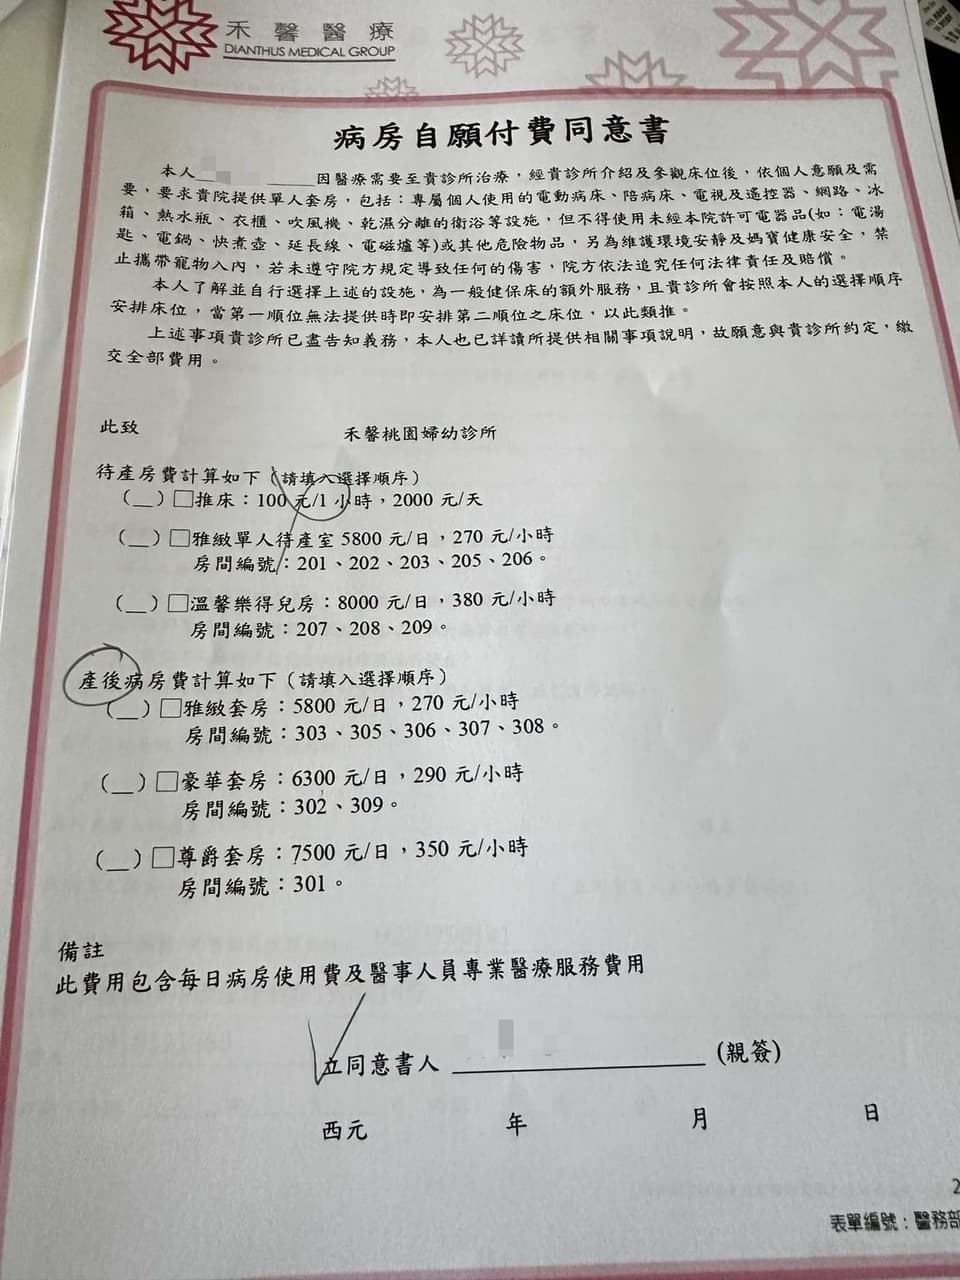 禾馨醫療
DIANTHUS MEDICAL GROUP
病房自願付費同意書
本人＿＿＿＿＿因醫療需要至貴診所治療，經貴診所介紹及參觀床位後，依個人意願及需
要，要求貴院提供單人套房，包括：專屬個人使用的電動病床、陪病床、電視及遙控器、網路、冰
箱、熱水瓶、衣櫃、吹風機、乾濕分離的衛浴等設施，但不得使用未經本院許可電器品(如：電湯
匙、電鍋、快煮壺、延長線、電磁爐等)或其他危險物品，另為維護環境安靜及媽寶健康安全，禁
止攜帶寵物入內，若未遵守院方規定導致任何的傷害，院方依法追究任何法律責任及賠償。
本人了解並自行選擇上述的設施，為一般健保床的額外服務，且貴診所會按照本人的選擇順序
安排床位，當第一順位無法提供時即安排第二順位之床位，以此類推。
上述事項貴診所已盡告知義務，本人也已詳讀所提供相關事項說明，故願意與貴診所約定，繳
交全部費用。
此致
禾馨桃園婦幼診所
待產房費計算如下（請填入選擇順序）
（＿）□推床：100 元/1 小時，2000 元/天
（＿）□雅緻單人待產室 5800 元/日，270 元/小時
房間編號：201、202、203、205、206。
（＿）□溫馨樂得兒房：8000 元/日，380 元/小時
房間編號：207、208、209。
產後病房費計算如下（請填入選擇順序）
（＿）□雅緻套房：5800 元/日，270 元/小時
房間編號：303、305、306、307、308。
（＿）□豪華套房：6300 元/日，290 元/小時
房間編號：302、309。
（＿）□尊爵套房：7500 元/日，350 元/小時
房間編號：301。
備註
此費用包含每日病房使用費及醫事人員專業醫療服務費用
立同意書人＿＿＿＿＿＿＿＿(親簽)
西元 年 月 日
2
表單編號：醫務部